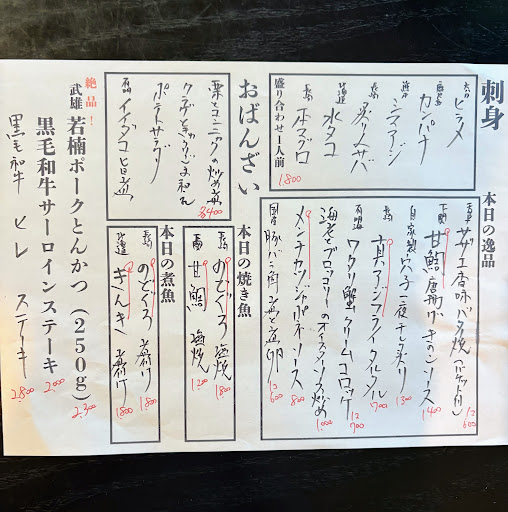 刺身
大分 ヒラメ
カンパチ
シマアジ
長崎 炙りサバ
北海道 水タコ
長崎 本マグロ
盛り合わせ一人前
1,800
おばんざい
栗とコンニャクの炒め煮
ポテトサラダ
イイダコ旨煮
各400
本日の逸品
サザエ香味バタ焼(バゲット付)
1コ600
下関 甘鯛唐揚げ きのこソース
1400
自家製 穴子一夜干し炙り
1300
長崎 真アジフライタルタル
700
有明海 ワタリ蟹クリームコロッケ
1コ700
海老とブロッコリーのオイスターソース炒め
1000
メンチカツジャポネソース
800
国産 豚バラ角煮と煮卵
1コ600
本日の焼き魚
長崎 のどぐろ 塩焼
1800
甘鯛 塩焼
1200
本日の煮魚
長崎 のどぐろ 煮付け
1800
北海道 きんき 煮付け
1800
絶品!
武雄 若楠ポークとんかつ (250g)
2,200
黒毛和牛サーロインステーキ
2,000
黒毛和牛 ヒレ ステーキ
2,800